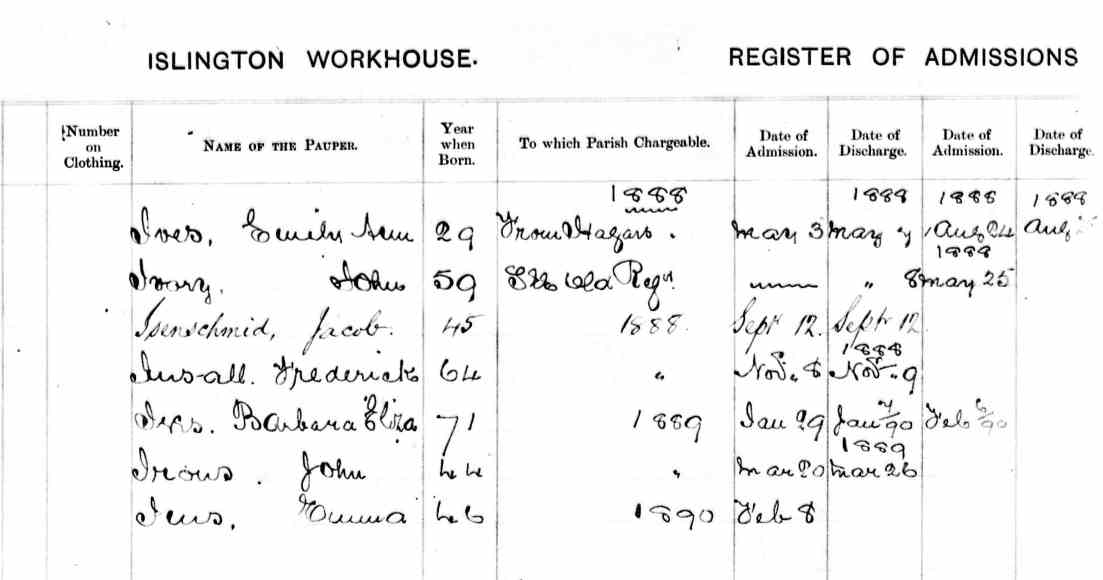 ISLINGTON WORKHOUSE. REGISTER OF ADMISSIONS
Number on Clothing. NAME OF THE PAUPER. Year when Born. To which Parish Chargeable. Date of Admission. Date of Discharge. Date of Admission. Date of Discharge.
1888 1888 1888 1888
Ives, Emily Ann 29 From Hagars. May 3 May 7 Aug 24 Aug
1888
Ivory, John 59 Old Regr. " 8 May 25
Isenschmid, Jacob. 45 1888. Sept 12. Sept 12
1888
Insall. Frederick 64 " Nov. 8 Nov. 9
Barbara Eliza 71 1889 Jan 29 Jan 7/90 Feb 6/90
1889
Irons. John 44 " Mar 20 Mar 26
Emma 46 1890 Feb 8